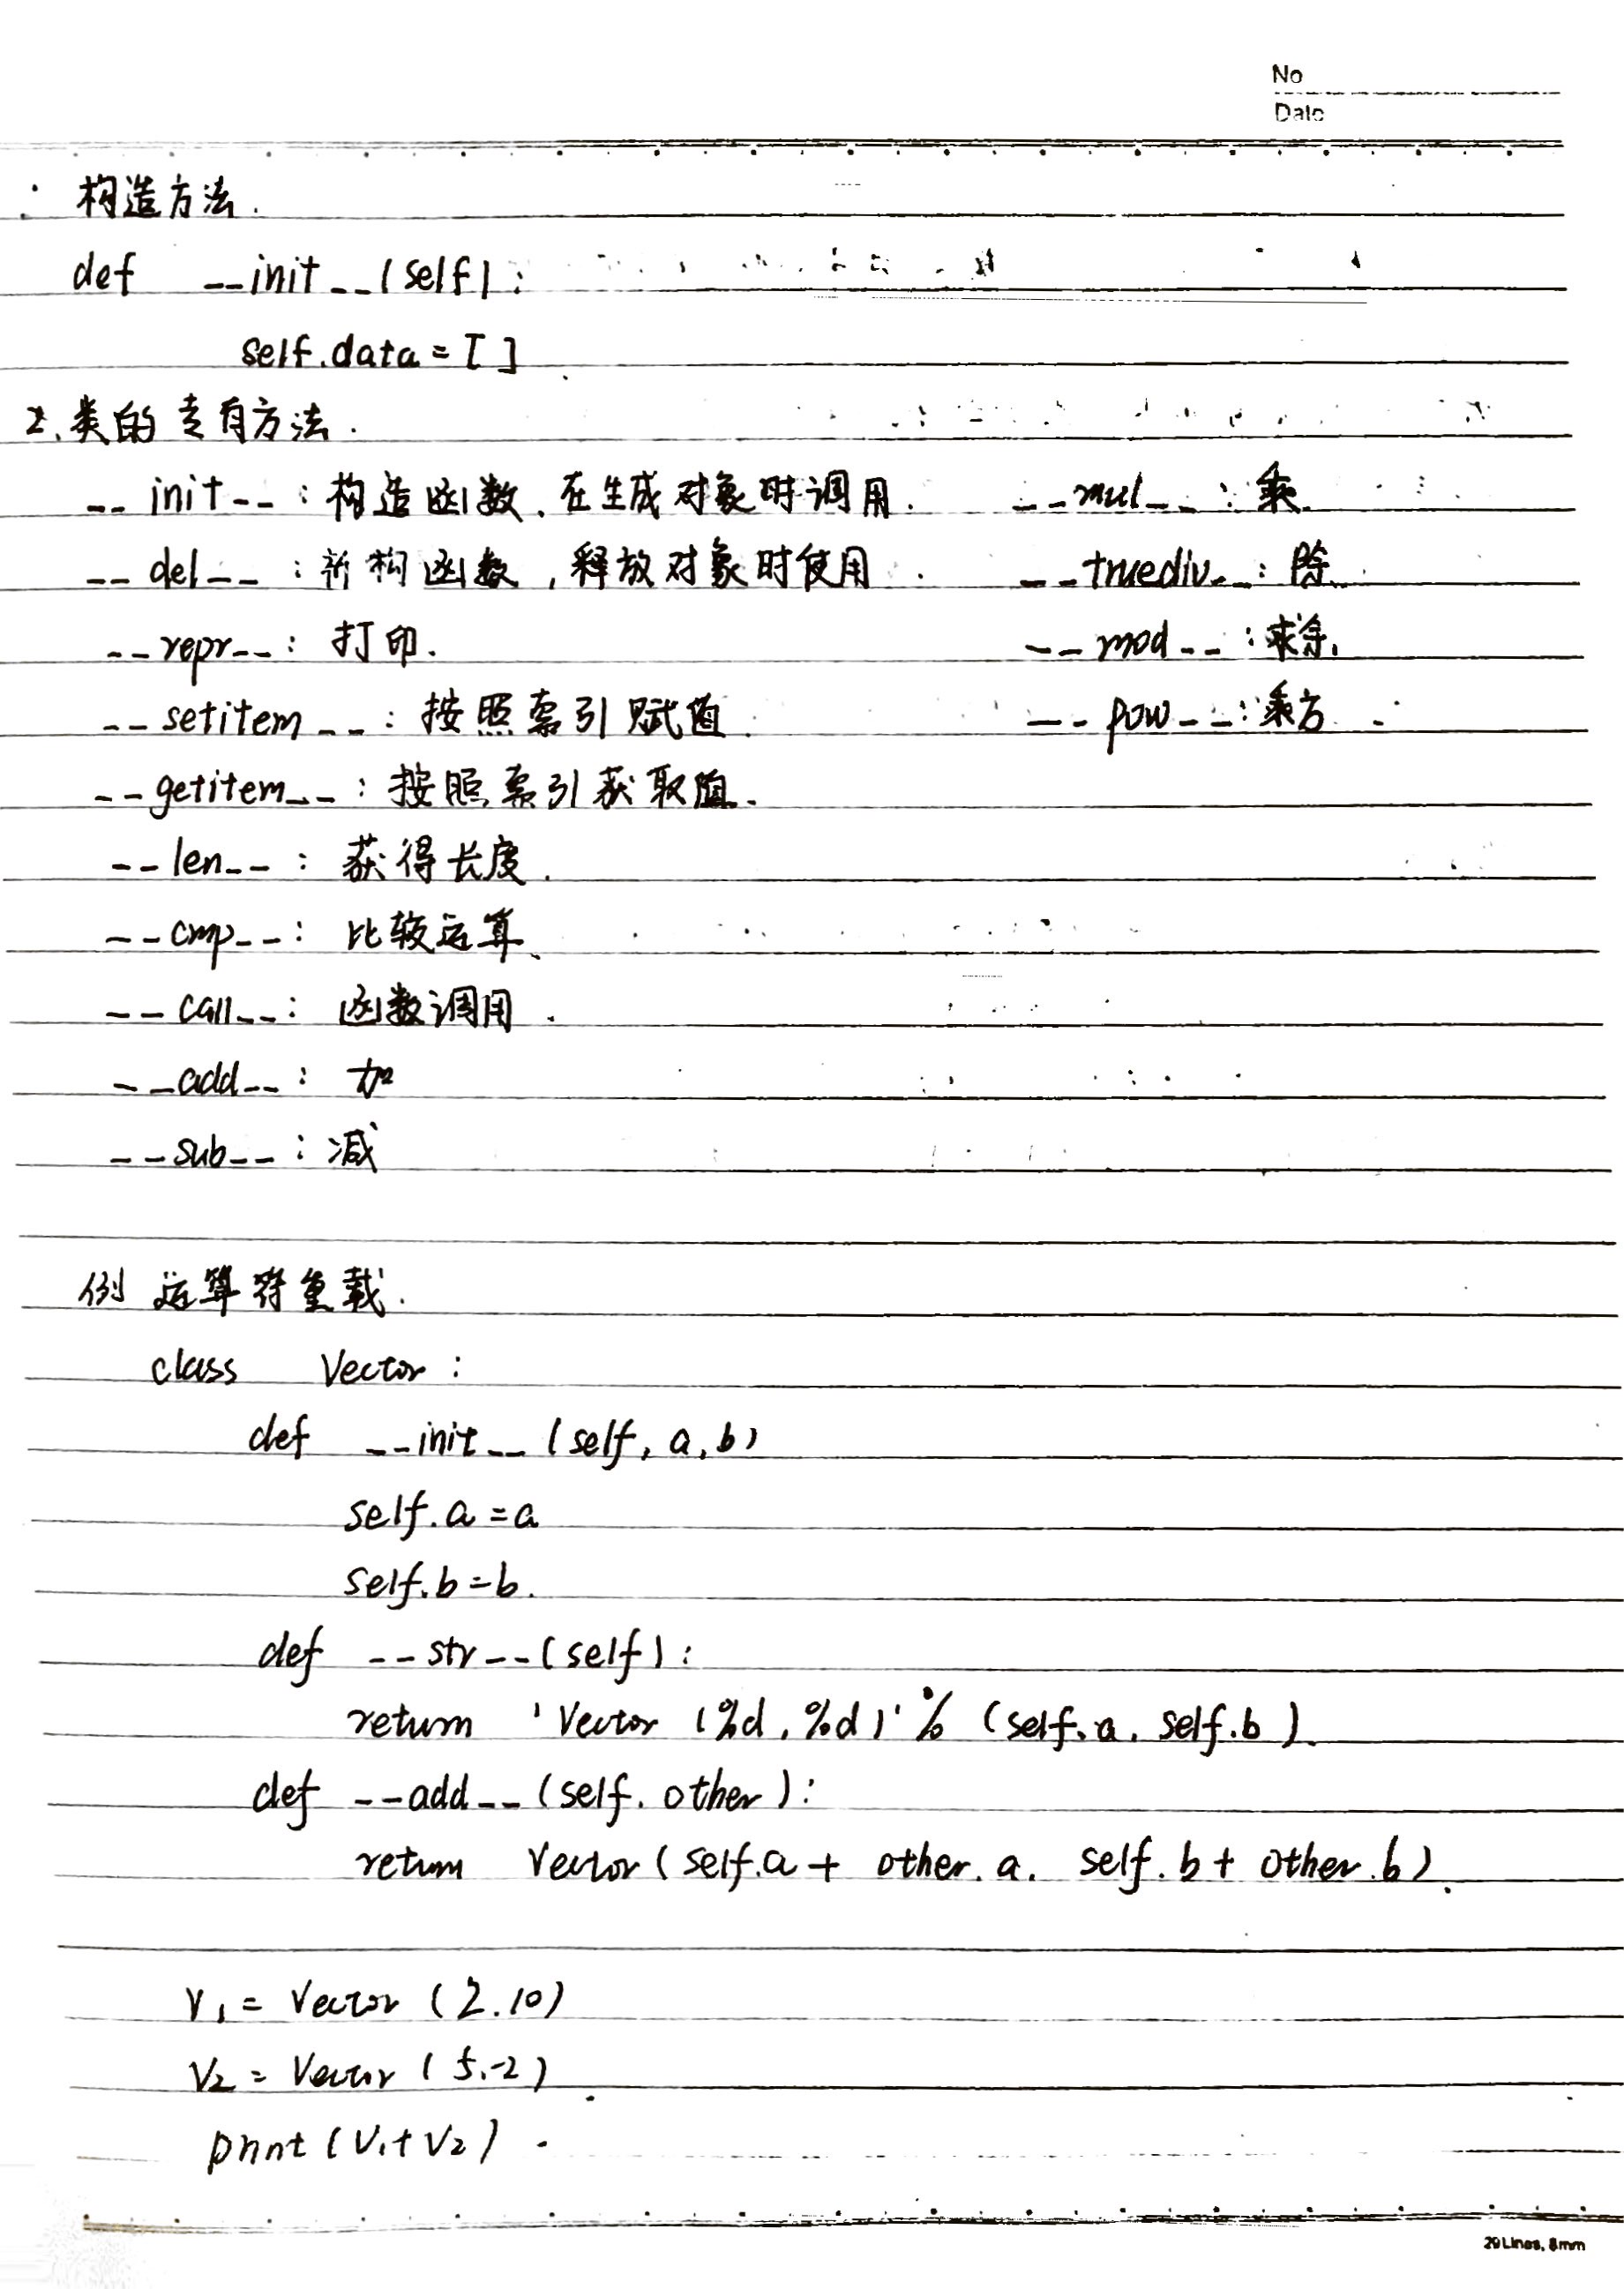 No
Date
: 构造方法.
def __init__(self):
self.data = [ ]
2. 类的专有方法.
__init__ : 构造函数, 在生成对象时调用. __mul__ : 乘.
__del__ : 析构函数, 释放对象时使用. __truediv__ : 除.
__repr__ : 打印. __mod__ : 求余.
__setitem__ : 按照索引赋值. __pow__ : 乘方.
__getitem__ : 按照索引获取值.
__len__ : 获得长度.
__cmp__ : 比较运算.
__call__ : 函数调用.
__add__ : 加
__sub__ : 减
例 运算符重载.
class Vector :
def __init__ (self, a, b)
self.a = a
self.b = b.
def __str__ (self) :
return 'Vector (%d, %d)' % (self.a, self.b).
def __add__ (self. other) :
return Vector (self.a + other.a. self.b + other.b).
V1 = Vector (2.10)
V2 = Vector (5.-2).
print (V1+V2).
29 Lines, 8mm